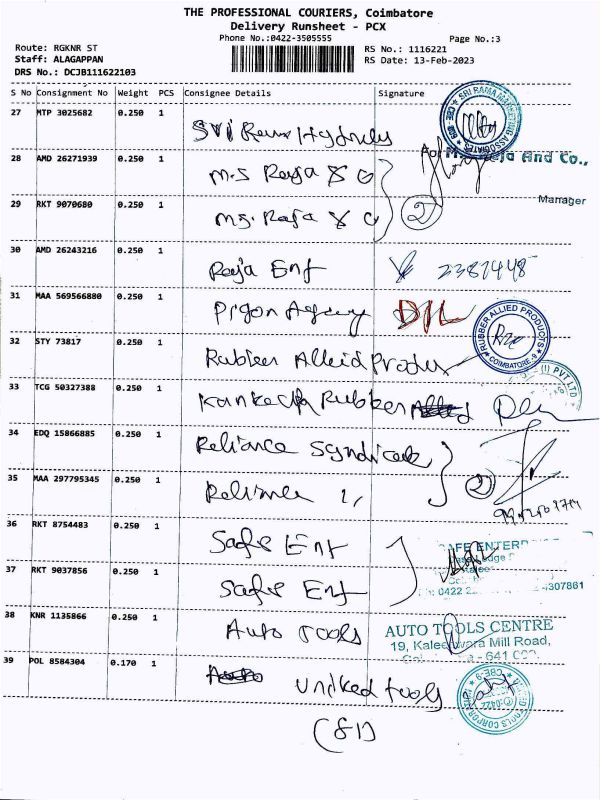 THE PROFESSIONAL COURIERS, Coimbatore
Delivery Runsheet - PCX
Phone No.:0422-3505555 Page No.:3
Route: RGKNR ST RS No.: 1116221
Staff: ALAGAPPAN RS Date: 13-Feb-2023
DRS No.: DCJB111622103
S No Consignment No Weight PCS Consignee Details Signature
27 MTP 3025682 0.250 1 Sri Rama Hydraulics
SRI RAMA MARKETING ASSOCIATES
28 AMD 26271939 0.250 1 M.S Raja & Co
Raja And Co.,
29 RKT 9070680 0.250 1 MS. Raja & Co 2
Manager
30 AMD 26243216 0.250 1 Raja Ent
31 MAA 569566880 0.250 1 Agency
32 STY 73817 0.250 1 Rubber Alleid
RUBBER ALLIED PRODUCTS COIMBATORE-9
(I) PVT LTD
33 TCG 50327388 0.250 1 Rubber
34 EDQ 15866885 0.250 1 Reliance Syndicate
35 MAA 297795345 0.250 1 Reliance 2
36 RKT 8754483 0.250 1 Safie Ent
37 RKT 9037856 0.250 1 Safie Ent
0422
4307861
38 KNR 1135866 0.250 1 Auto Tools
AUTO TOOLS CENTRE
19, Kaleeswara Mill Road,
641
39 POL 8584304 0.170 1 United tools